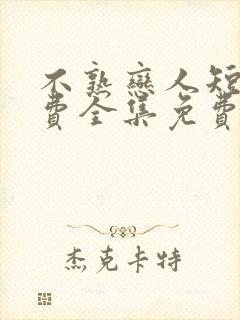 不熟戀人短
費全集免費
杰克卡特